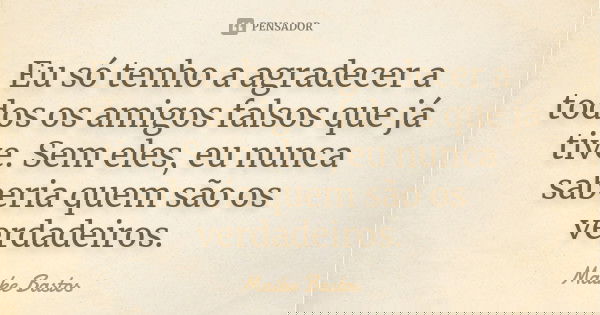 PENSADOR
Eu só tenho a agradecer a
todos os amigos falsos que já
tive. Sem eles, eu nunca
saberia quem são os
verdadeiros.
Maike Bastos